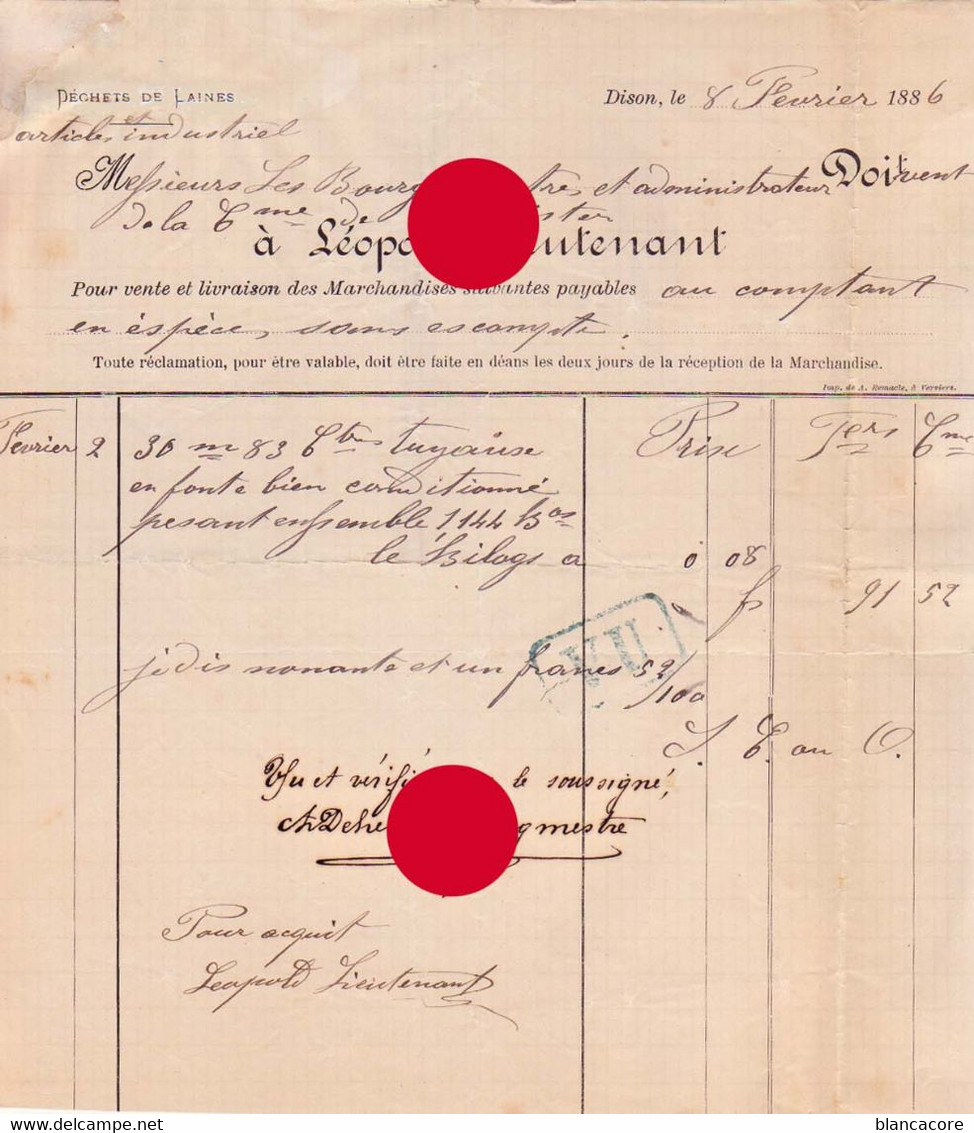 DÉCHETS DE LAINES
Dison, le 8 Fevrier 1886
et
article industriel
Messieurs Les Bourg tre, et administrateur Doivent
de la Cme de ister
à Léopo utenant
Pour vente et livraison des Marchandises suivantes payables au comptant
en éspèce, sans escompte.
Toute réclamation, pour être valable, doit être faite en déans les deux jours de la réception de la Marchandise.
Imp. de A. Remacle, à Verviers.
Fevrier 2 30 m 83 Ctres tuyause Prix
en fonte bien conditionné
pesant ensemble 1144 Kos
le Kilogs a 0 08
fs 91 52
VU
je dis nonante et un francs 52/100
S. E. ou O.
Vu et vérifi le soussigné,
gmestre
Pour acquit
Leopold Lieutenant
delcampe.net
blancacore